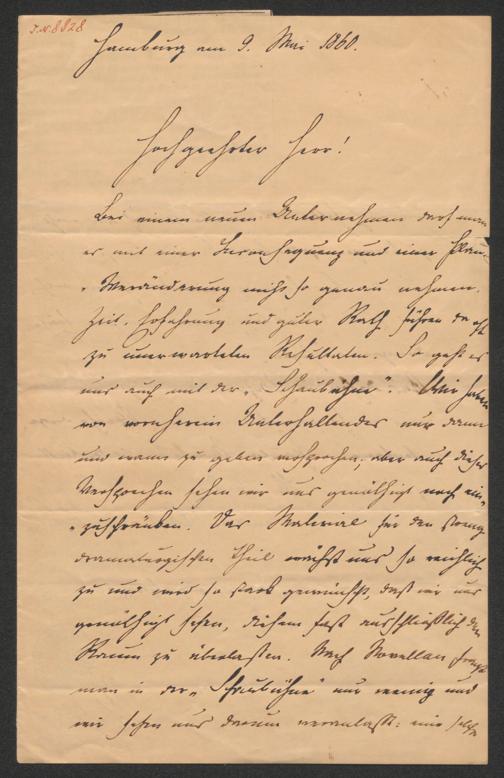 I.N. 8828
Hamburg am 9. Mai 1860.
Hochgeehrter Herr!
Bei einem neuen Unternehmen darf man
es mit einer Inconsequenz und einer Plan-
Veränderung nicht so genau nehmen.
Zeit, Erfahrung und guter Rath führen da oft
zu unerwarteten Resultaten. So geht es
uns auch mit der „Schaubühne". Wir haben
von vornherein Unterhaltendes nur dann
und wann zu geben versprochen, aber auch dieses
Versprechen sehen wir uns genöthigt noch ein-
zuschränken. Das Material für den streng
dramaturgischen Theil wächst uns so reichlich
zu und wird so stark gewünscht, daß wir uns
genöthigt sehen, diesem fast ausschließlich den
Raum zu überlassen. Nach Novellen fragt
man in der „Schaubühne" nur wenig und
wir sehen uns darum veranlaßt: eine solche